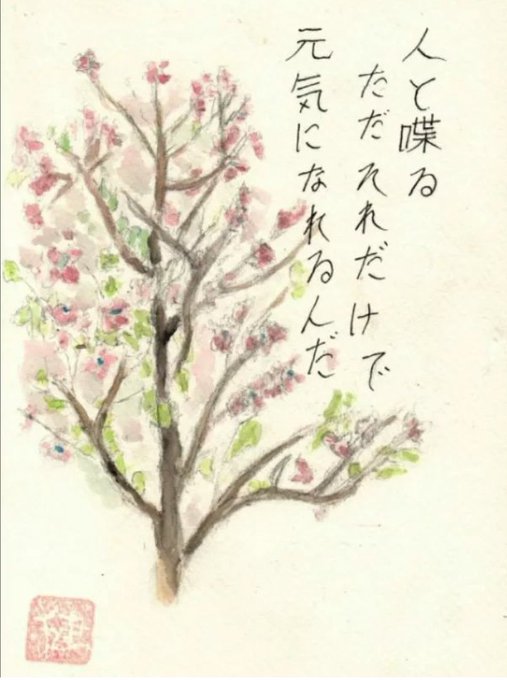 人と喋る
ただそれだけで
元気になれるんだ